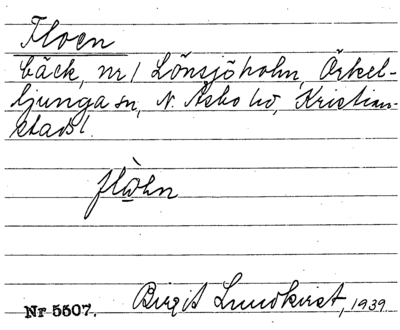 Floen
bäck, nr 1 Lönsjöholm, Örkel-
ljunga sn, N. Åsbo hd, Kristian-
stads l.
Birgit Lundkvist, 1939.
Nr 5507.